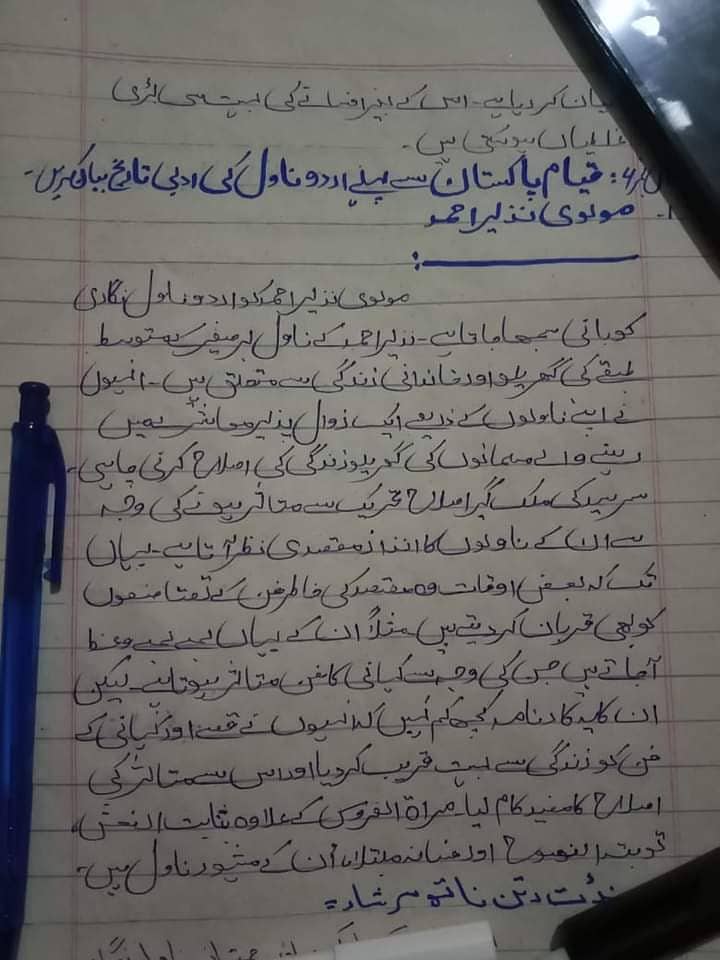 بیان کر دیا ہے۔ اس کے بغیر افسانے کی بہت سی بڑی
غلطیاں ہو سکتی ہیں۔
قیام پاکستان سے پہلے اردو ناول کی ادبی تاریخ بیان کریں۔
مولوی نذیر احمد
:
مولوی نذیر احمد کو اردو ناول نگاری
کو بانی سمجھا جاتا ہے۔ نذیر احمد کے ناول برصغیر کے متوسط
طبقے کی گھریلو اور خاندانی زندگی سے متعلق ہیں۔ انہوں
نے اپنے ناولوں کے ذریعے ایک زوال پذیر معاشرے میں
رہنے والے مسلمانوں کی گھریلو زندگی کی اصلاح کرنی چاہی۔
سرسید کی ملک گیر اصلاح تحریک سے متاثر ہونے کی وجہ
سے ان کے ناولوں کا انداز مقصدی نظر آتا ہے۔ یہاں
تک کہ بعض اوقات وہ مقصد کی خاطر فن کے تقاضوں
کو بھی قربان کر دیتے ہیں مثلاً ان کے یہاں لمبے لمبے وعظ
آ جاتے ہیں جن کی وجہ سے کہانی کا فن متاثر ہوتا ہے۔ لیکن
ان کا یہ کارنامہ کچھ کم نہیں کہ انہوں نے قصے اور کہانی کے
فن کو زندگی سے بہت قریب کر دیا اور اس سے معاشرے کی
اصلاح کا مفید کام لیا۔ مراۃ العروس کے علاوہ بنات النعش،
توبۃ النصوح اور فسانہ مبتلا، ان کے مشہور ناول ہیں۔
پنڈت رتن ناتھ سرشار: